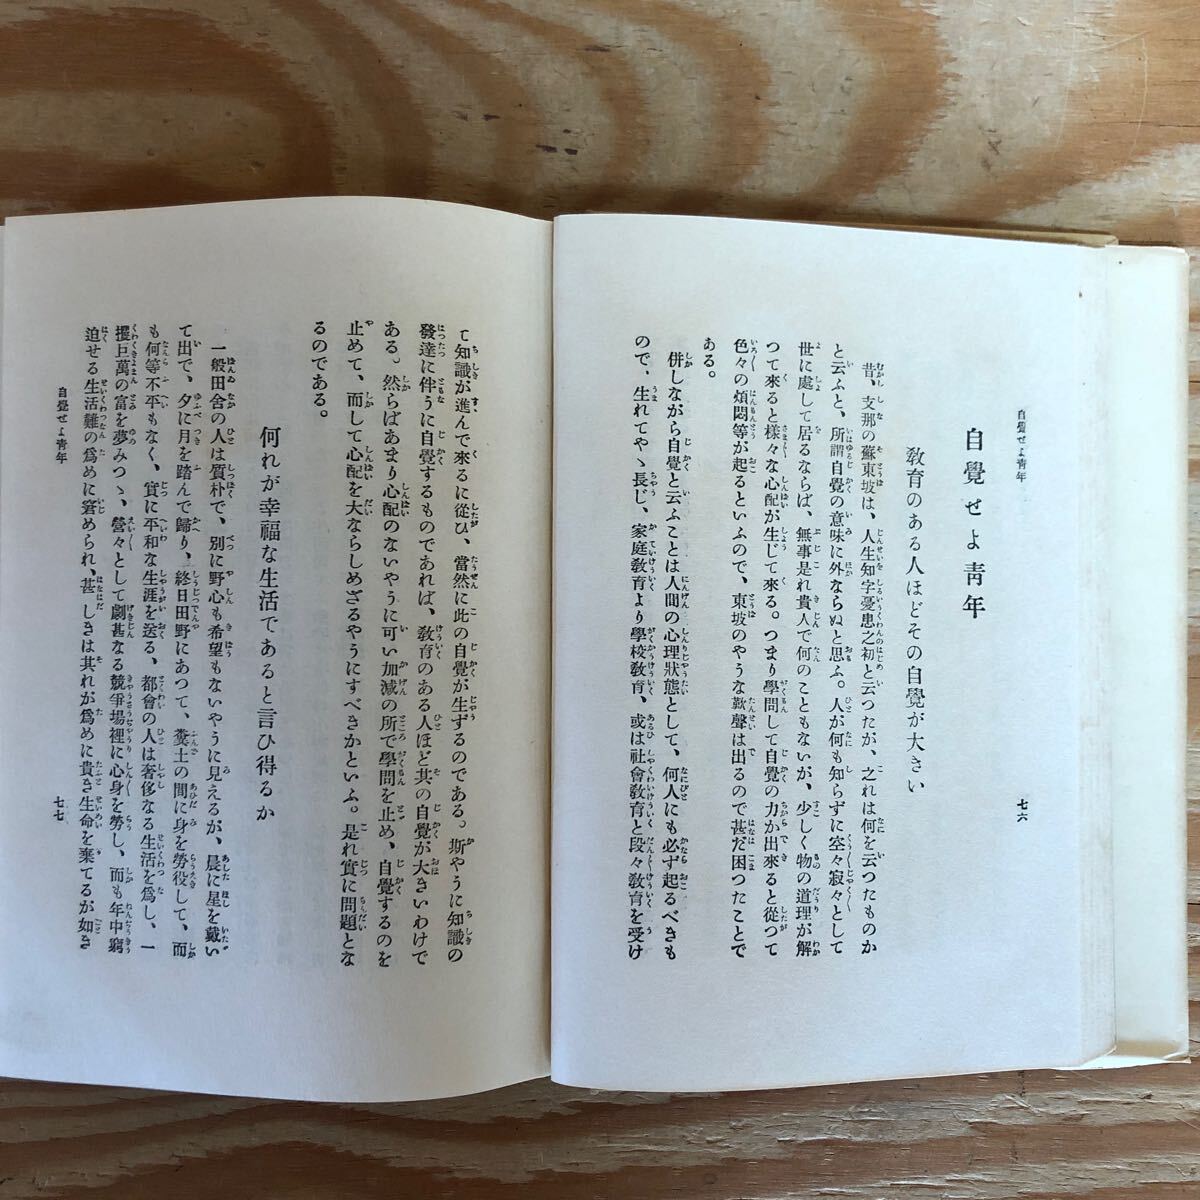 自覺せよ青年
七六
自覺せよ青年
敎育のある人ほどその自覺が大きい
昔、支那の蘇東坡は、人生知字憂患之初と云つたが、之れは何を云つたものか
と云ふと、所謂自覺の意味に外ならぬと思ふ。人が何も知らずに空々寂々として
世に處して居るならば、無事是れ貴人で何のこともないが、少しく物の道理が解
つて來ると樣々な心配が生じて來る。つまり學問して自覺の力が出來ると從つて
色々の煩悶等が起るといふので、東坡のやうな歎聲は出るので甚だ困つたことで
ある。
併しながら自覺と云ふことは人間の心理狀態として、何人にも必ず起るべきも
ので、生れてやゝ長じ、家庭敎育より學校敎育、或は社會敎育と段々敎育を受け
て知識が進んで來るに從ひ、當然に此の自覺が生ずるのである。斯やうに知識の
發達に伴うに自覺するものであれば、敎育のある人ほど其の自覺が大きいわけで
ある。然らばあまり心配のないやうに可い加減の所で學問を止め、自覺するのを
止めて、而して心配を大ならしめざるやうにすべきかといふ。是れ實に問題とな
るのである。
何れが幸福な生活であると言ひ得るか
一般田舍の人は質朴で、別に野心も希望もないやうに見えるが、晨に星を戴い
て出で、夕に月を踏んで歸り、終日田野にあつて、糞土の間に身を勞役して、而
も何等不平もなく、實に平和な生涯を送る、都會の人は奢侈なる生活を爲し、一
攫巨萬の富を夢みつゝ、營々として劇甚なる競爭場裡に心身を勞し、而も年中窮
迫せる生活難の爲めに窘められ、甚しきは其れが爲めに貴き生命を棄てるが如き
自覺せよ靑年
七七